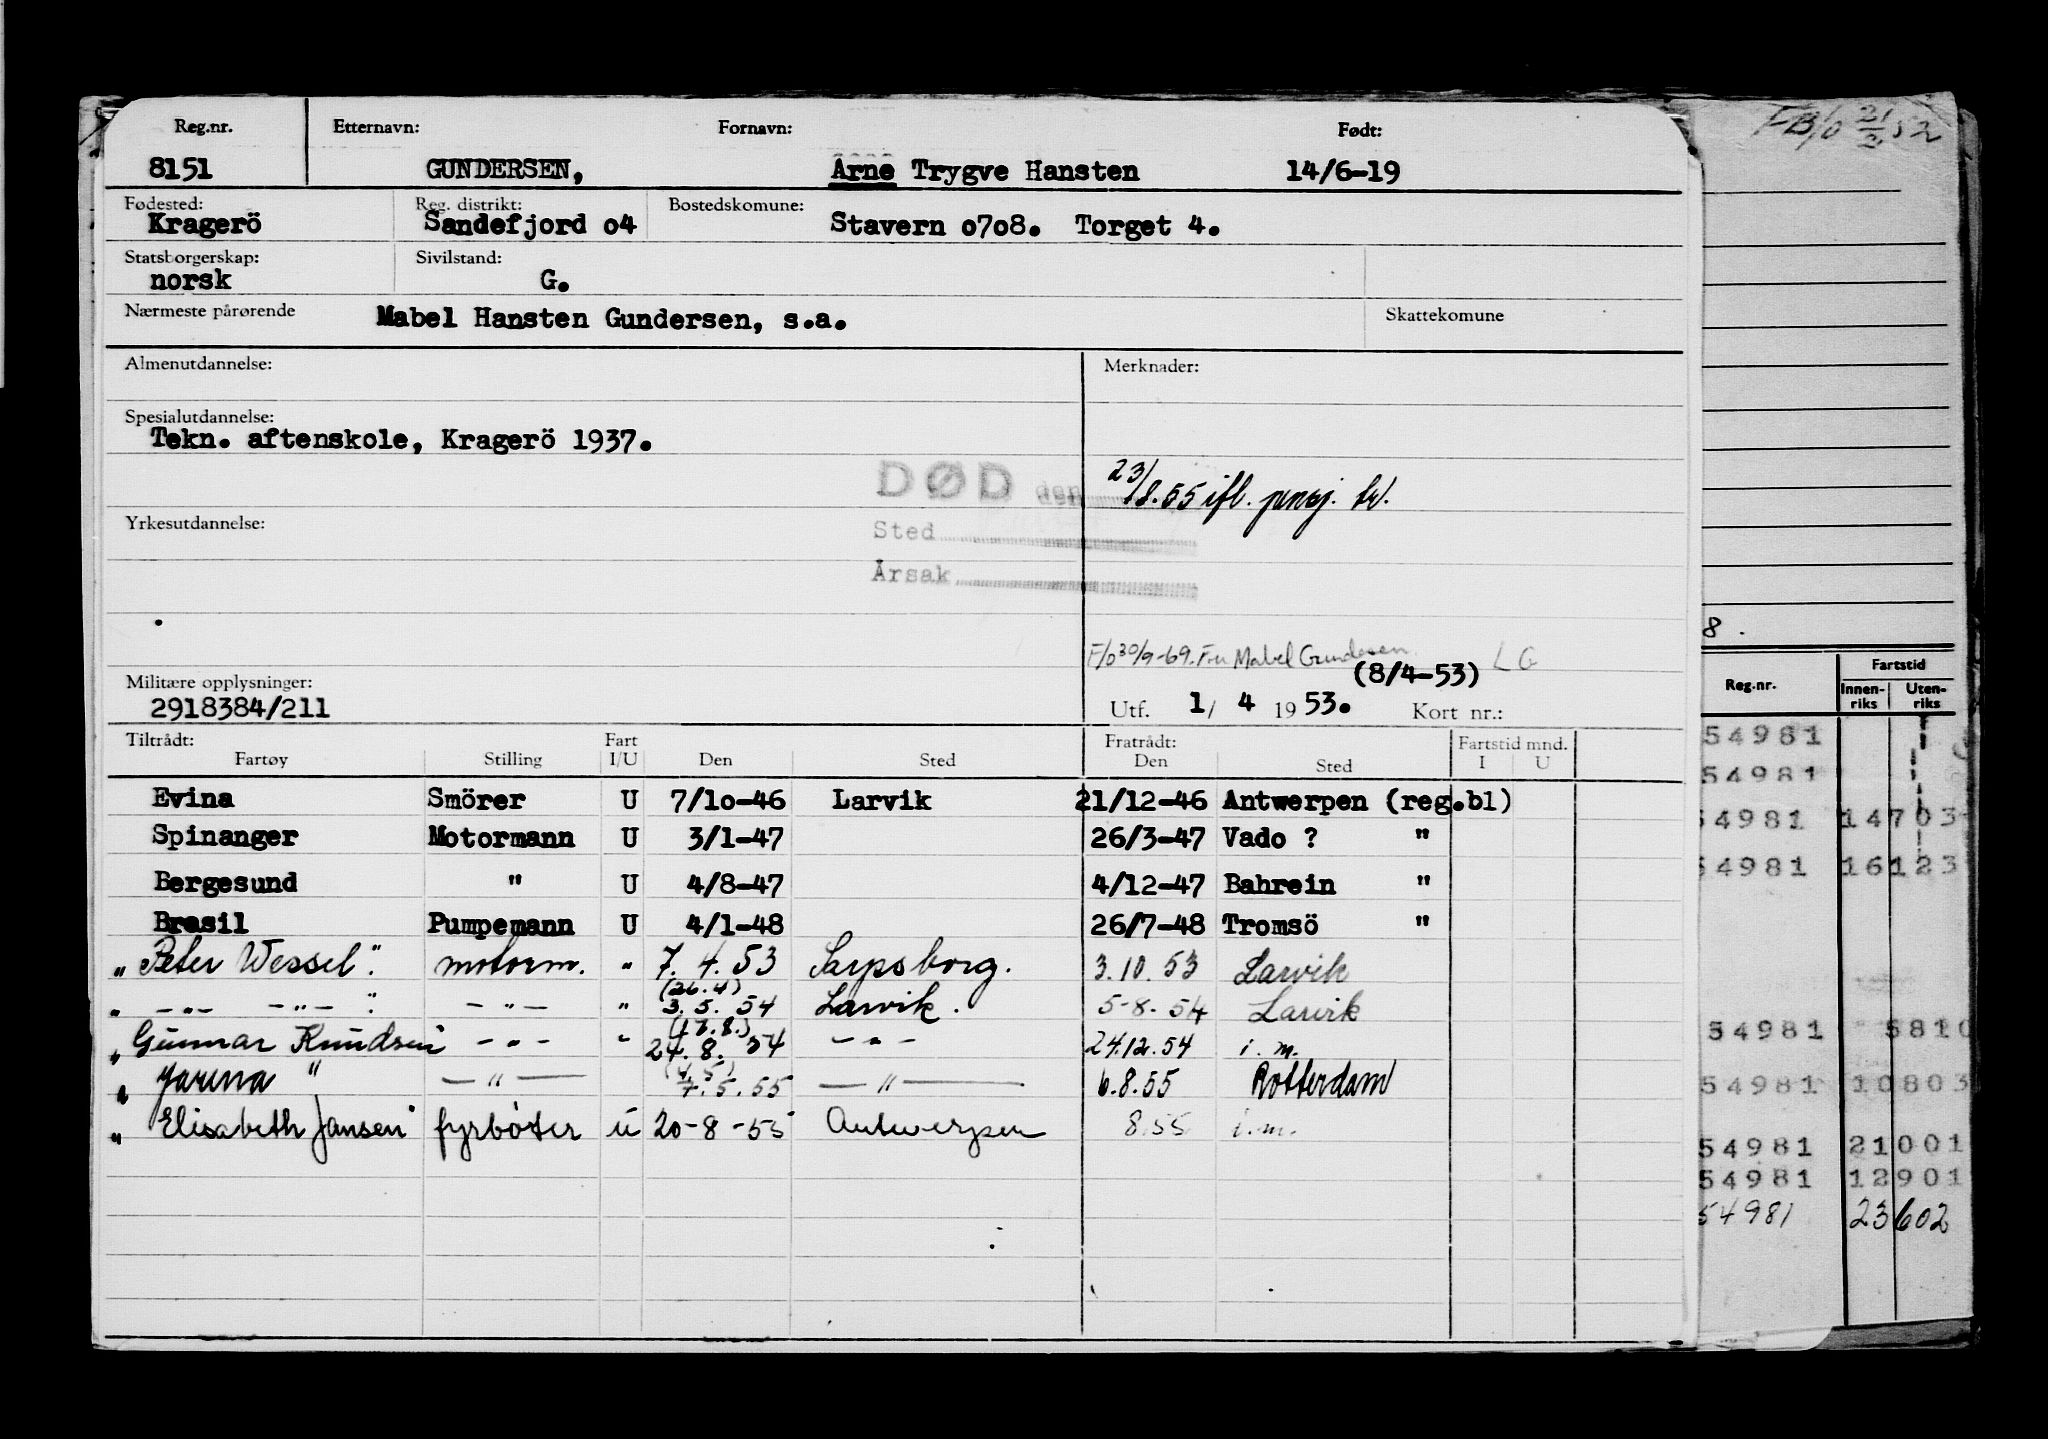 Reg.nr. Etternavn: Fornavn: Født:
8151 GUNDERSEN, Arne Trygve Hansten 14/6-19
Fødested: Reg. distrikt: Bostedskomune:
Kragerö Sandefjord o4 Stavern o7o8. Torget 4.
Statsborgerskap: Sivilstand:
norsk G.
Nærmeste pårørende Mabel Hansten Gundersen, s.a. Skattekomune
Almenutdannelse: Merknader:
Spesialutdannelse:
Tekn. aftenskole, Kragerö 1937.
DØD den 23/8.55 ifl. pensj. tr.
Sted
Årsak
Yrkesutdannelse:
F/o 30/9-69. Fru Mabel Gundersen. L G
(8/4-53)
Militære opplysninger:
2918384/211 Utf. 1/ 4 1953. Kort nr.:
Tiltrådt: Fart Fratrådt: Fartstid mnd.
Fartøy Stilling I/U Den Sted Den Sted I U
Evina Smörer U 7/1o-46 Larvik 21/12-46 Antwerpen (reg.bl)
Spinanger Motormann U 3/1-47 26/3-47 Vado ? "
Bergesund " U 4/8-47 4/12-47 Bahrein "
Brasil Pumpemann U 4/1-48 26/7-48 Tromsö "
" Peter Wessel". motorm. " 7. 4. 53 Sarpsborg. 3.10. 53 Larvik
(26.4)
" -"- -"- " -"- " 3. 5. 54 Larvik. 5-8. 54 Larvik
(17.8.)
" Gunnar Knudsen" -"- " 24. 8. 54 -"- 24.12.54 i. m.
" Jarena " -"- 7.5.55 -"- 6.8.55 Rotterdam
" Elisabeth Jansen" fyrbøter u 20-8-55 Antwerpen 8.55 i.m.
FB/o 21/2 52
8.
Fartstid
Reg.nr. Innen-riks Uten-riks
54981
54981
54981 14703
54981 16123
54981 5810
54981 10803
54981 21001
54981 12901
54981 23602